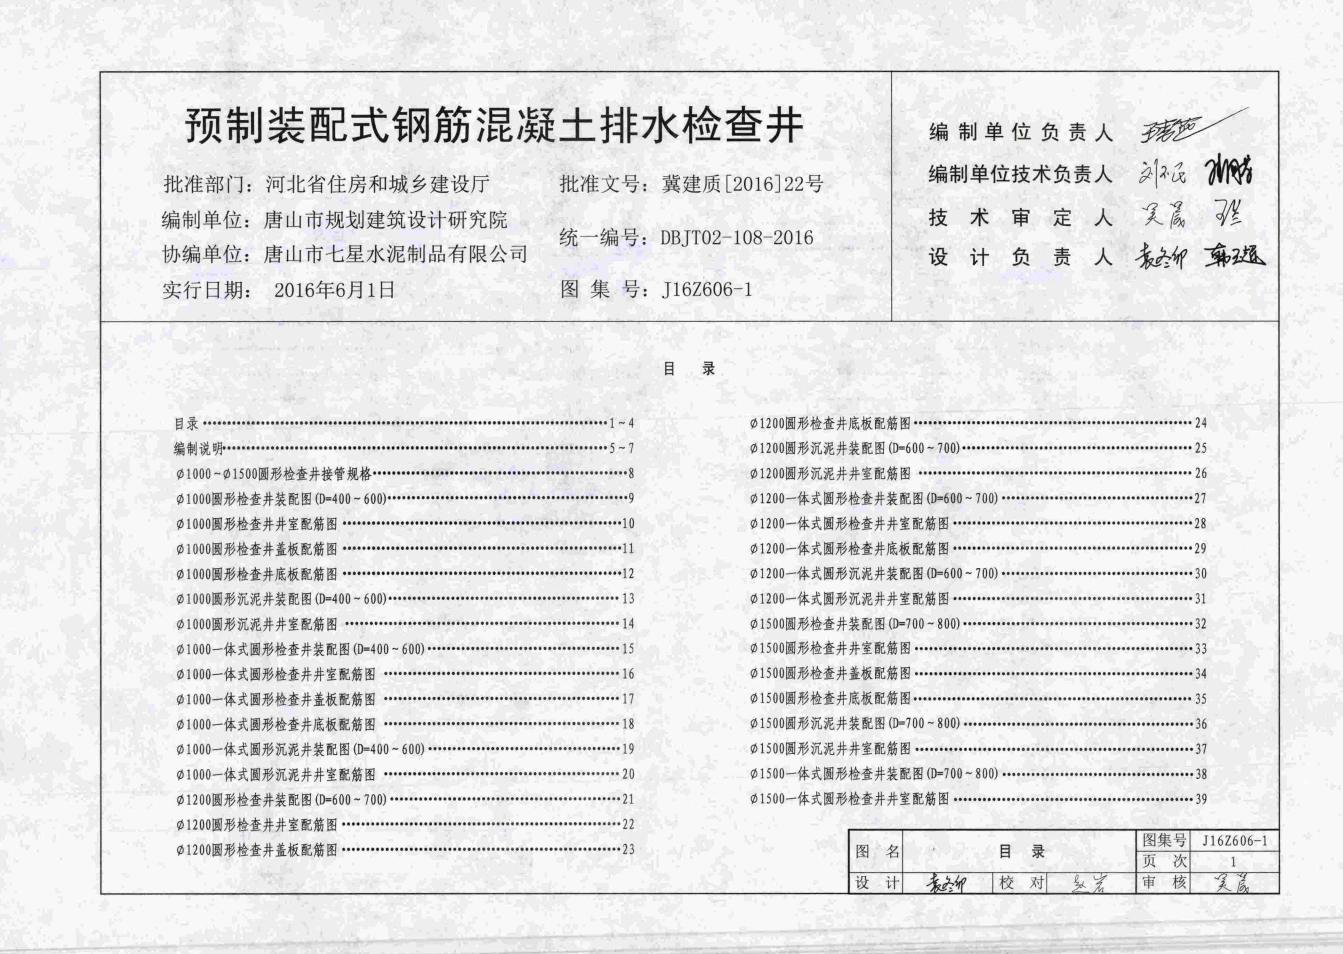 预制装配式钢筋混凝土排水检查井
批准部门：河北省住房和城乡建设厅
批准文号：冀建质[2016]22号
编制单位：唐山市规划建筑设计研究院
统一编号：DBJT02-108-2016
协编单位：唐山市七星水泥制品有限公司
实行日期： 2016年6月1日
图 集 号：J16Z606-1
编制单位负责人
编制单位技术负责人
技术审定人 吴晟
设计负责人
目 录
目录 1~4
编制说明 5~7
φ1000~φ1500圆形检查井接管规格 8
φ1000圆形检查井装配图(D=400~600) 9
φ1000圆形检查井井室配筋图 10
φ1000圆形检查井盖板配筋图 11
φ1000圆形检查井底板配筋图 12
φ1000圆形沉泥井装配图(D=400~600) 13
φ1000圆形沉泥井井室配筋图 14
φ1000一体式圆形检查井装配图(D=400~600) 15
φ1000一体式圆形检查井井室配筋图 16
φ1000一体式圆形检查井盖板配筋图 17
φ1000一体式圆形检查井底板配筋图 18
φ1000一体式圆形沉泥井装配图(D=400~600) 19
φ1000一体式圆形沉泥井井室配筋图 20
φ1200圆形检查井装配图(D=600~700) 21
φ1200圆形检查井井室配筋图 22
φ1200圆形检查井盖板配筋图 23
φ1200圆形检查井底板配筋图 24
φ1200圆形沉泥井装配图(D=600~700) 25
φ1200圆形沉泥井井室配筋图 26
φ1200一体式圆形检查井装配图(D=600~700) 27
φ1200一体式圆形检查井井室配筋图 28
φ1200一体式圆形检查井底板配筋图 29
φ1200一体式圆形沉泥井装配图(D=600~700) 30
φ1200一体式圆形沉泥井井室配筋图 31
φ1500圆形检查井装配图(D=700~800) 32
φ1500圆形检查井井室配筋图 33
φ1500圆形检查井盖板配筋图 34
φ1500圆形检查井底板配筋图 35
φ1500圆形沉泥井装配图(D=700~800) 36
φ1500圆形沉泥井井室配筋图 37
φ1500一体式圆形检查井装配图(D=700~800) 38
φ1500一体式圆形检查井井室配筋图 39
图 名 目 录 图集号 J16Z606-1
页 次 1
设 计 校 对 赵岩 审 核 吴晟